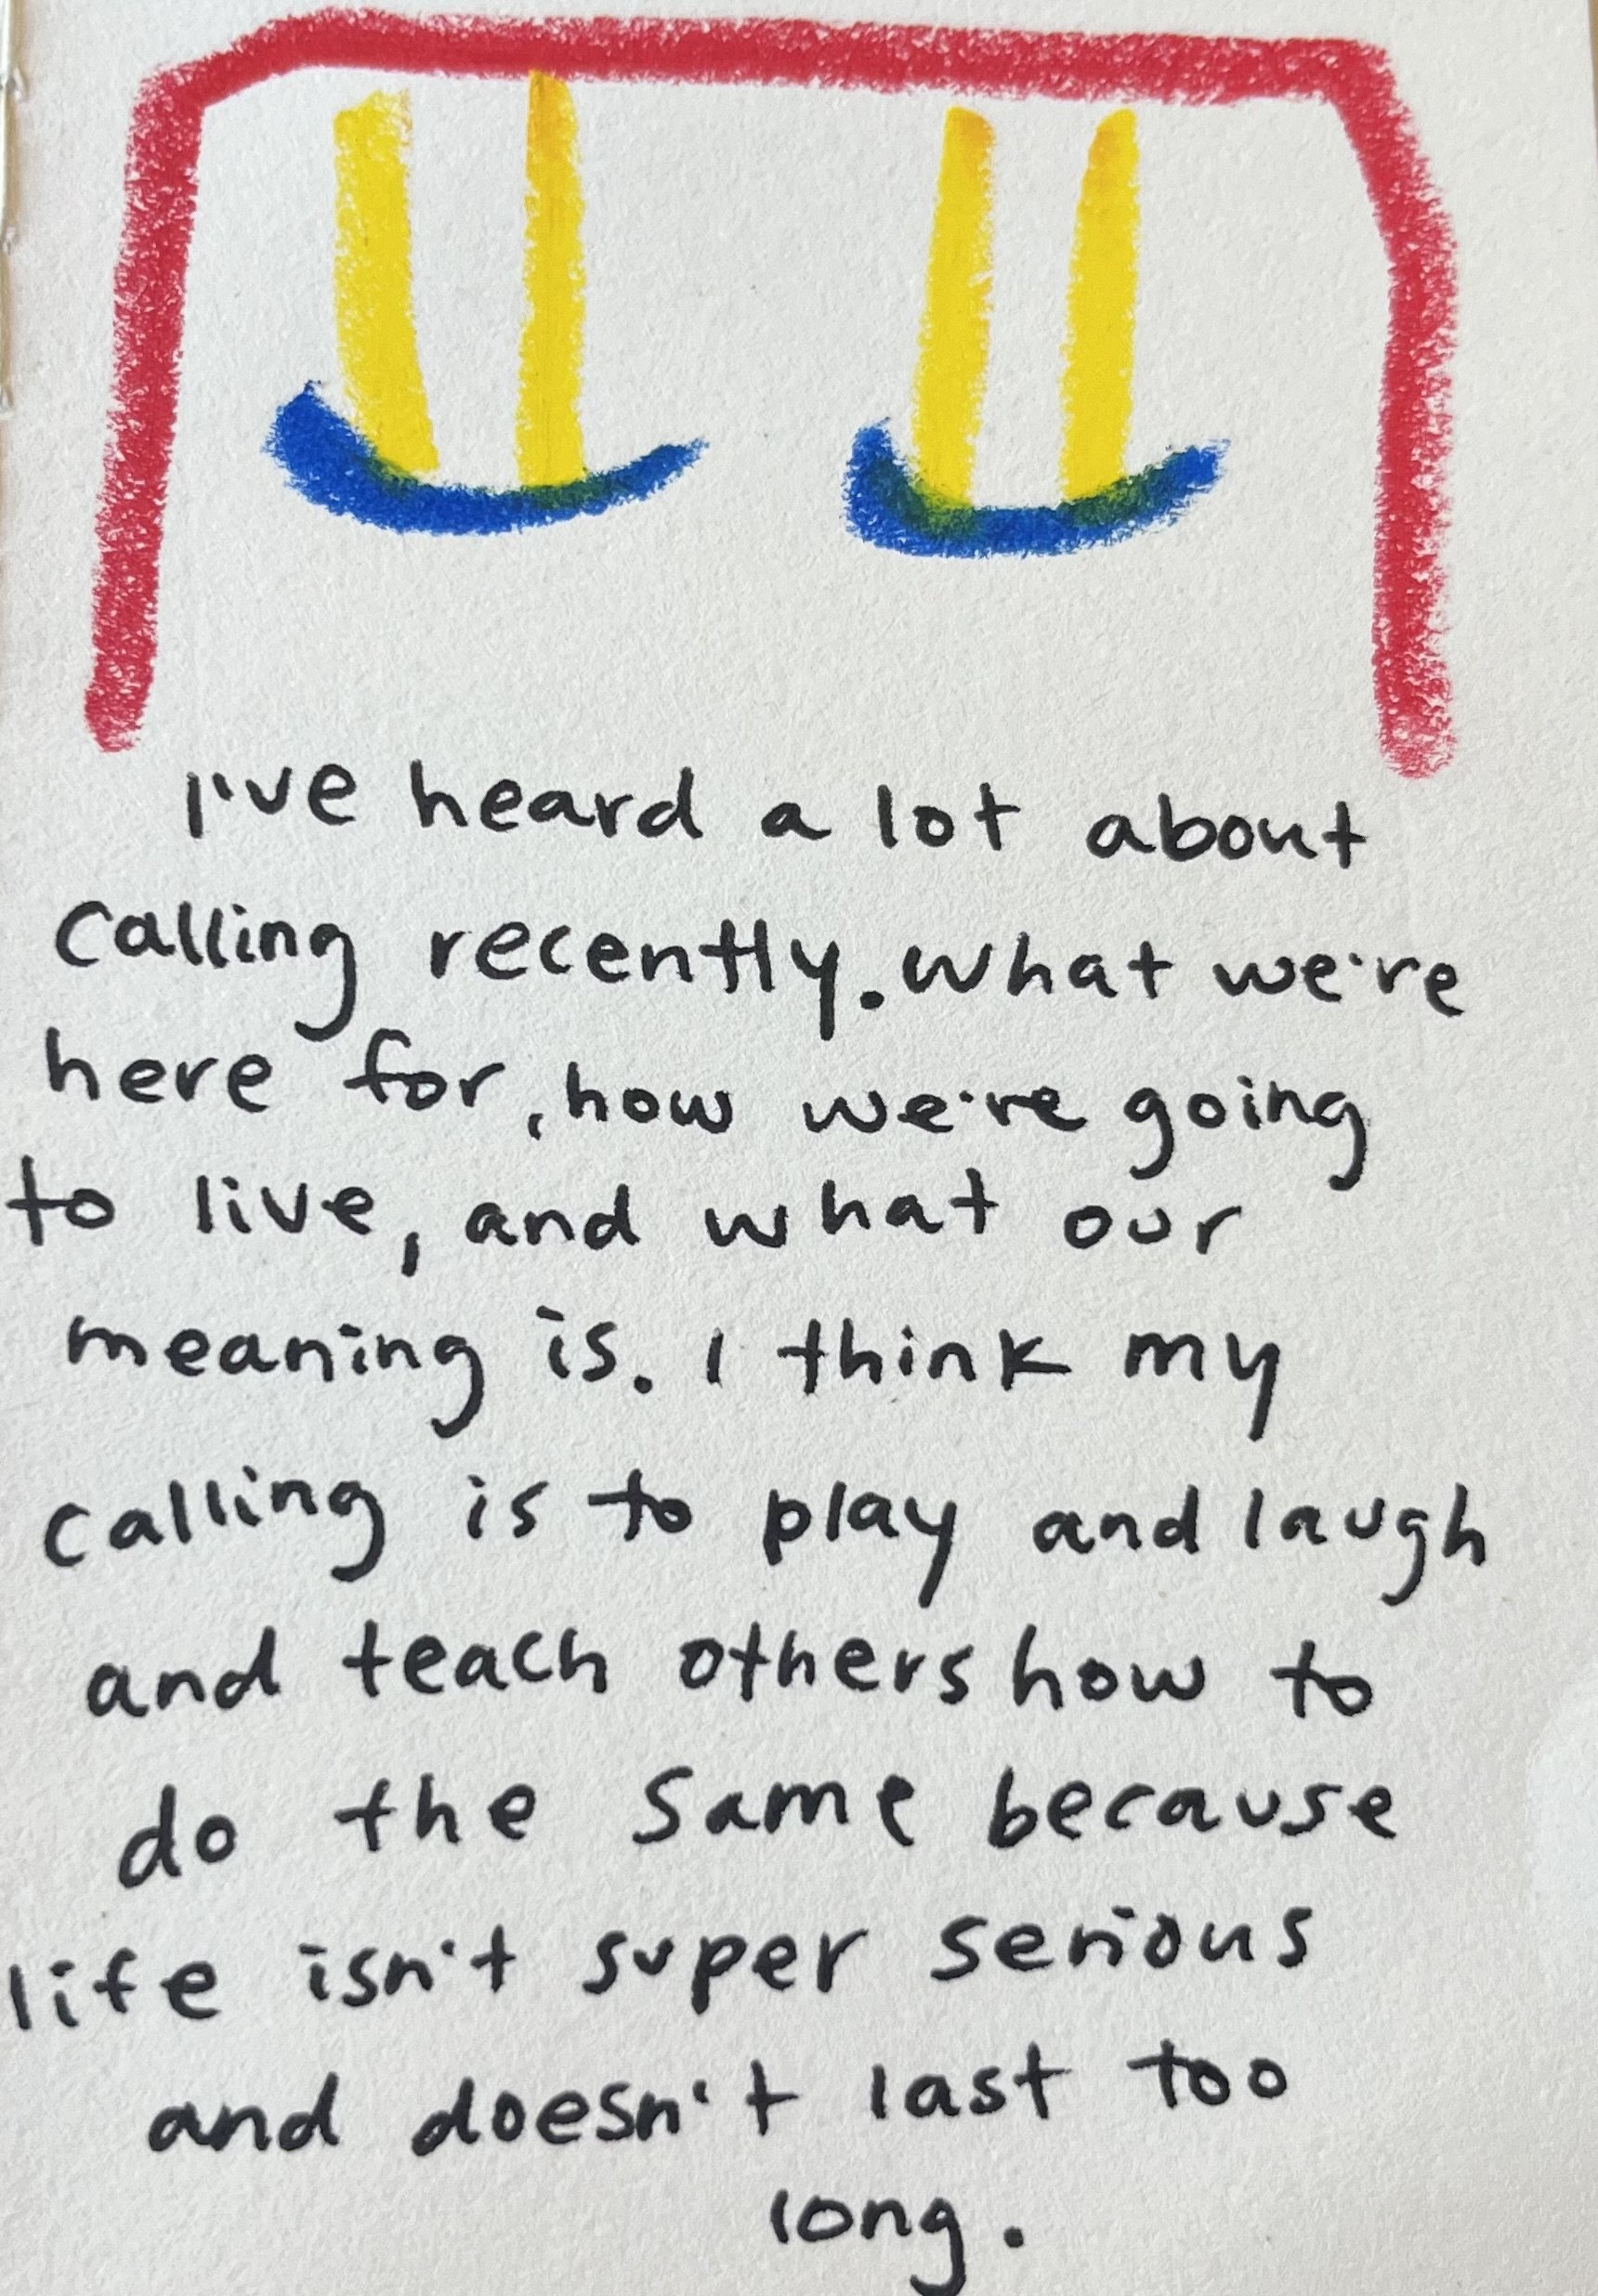 I've heard a lot about
calling recently. What we're
here for, how we're going
to live, and what our
meaning is. I think my
calling is to play and laugh
and teach others how to
do the same because
life isn't super serious
and doesn't last too
long.